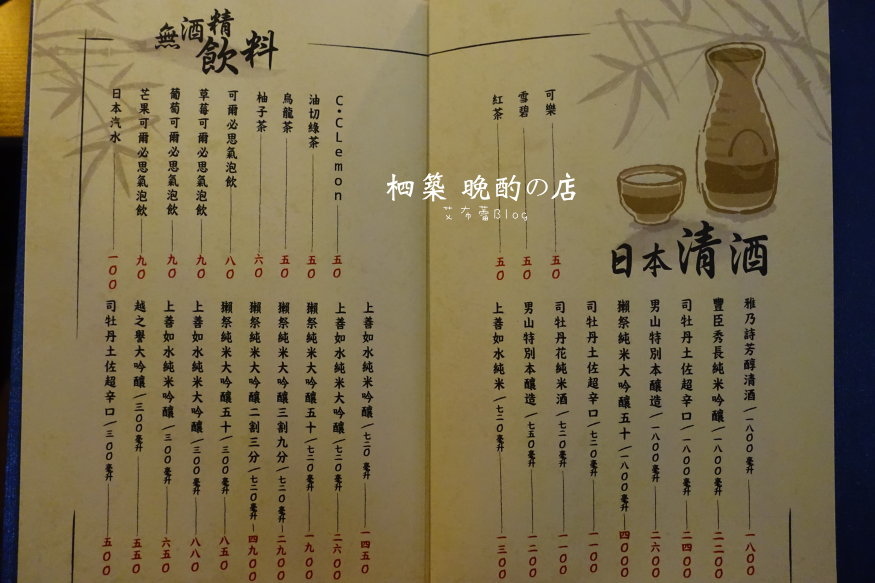 日本清酒
雅乃詩芳醇清酒/一八00毫升 一八00
豐臣秀長純米吟釀/一八00毫升 二二00
司牡丹土佐超辛口/一八00毫升 二四00
男山特別本釀造/一八00毫升 二六00
獺祭純米大吟釀五十/一八00毫升 四000
司牡丹土佐超辛口/七二0毫升 一一00
司牡丹花純米酒/七二0毫升 一一00
男山特別本釀造/七五0毫升 一二00
上善如水純米/七二0毫升 一三00
可樂 五0
雪碧 五0
紅茶 五0
栖築 晚酌の店
艾布蕾Blog
上善如水純米吟釀/七二0毫升 一四五0
上善如水純米大吟釀/七二0毫升 二六00
獺祭純米大吟釀五十/七二0毫升 一九00
獺祭純米大吟釀三割九分/七二0毫升 二九00
獺祭純米大吟釀二割三分/七二0毫升 四九00
獺祭純米大吟釀五十/三00毫升 八五0
上善如水純米大吟釀/三00毫升 八八0
上善如水純米吟釀/三00毫升 六五0
越之譽大吟釀/三00毫升 五五0
司牡丹土佐超辛口/三00毫升 五00
無酒精飲料
C.CLemon 五0
油切綠茶 五0
烏龍茶 五0
柚子茶 六0
可爾必思氣泡飲 八0
草莓可爾必思氣泡飲 九0
葡萄可爾必思氣泡飲 九0
芒果可爾必思氣泡飲 九0
日本汽水 一00